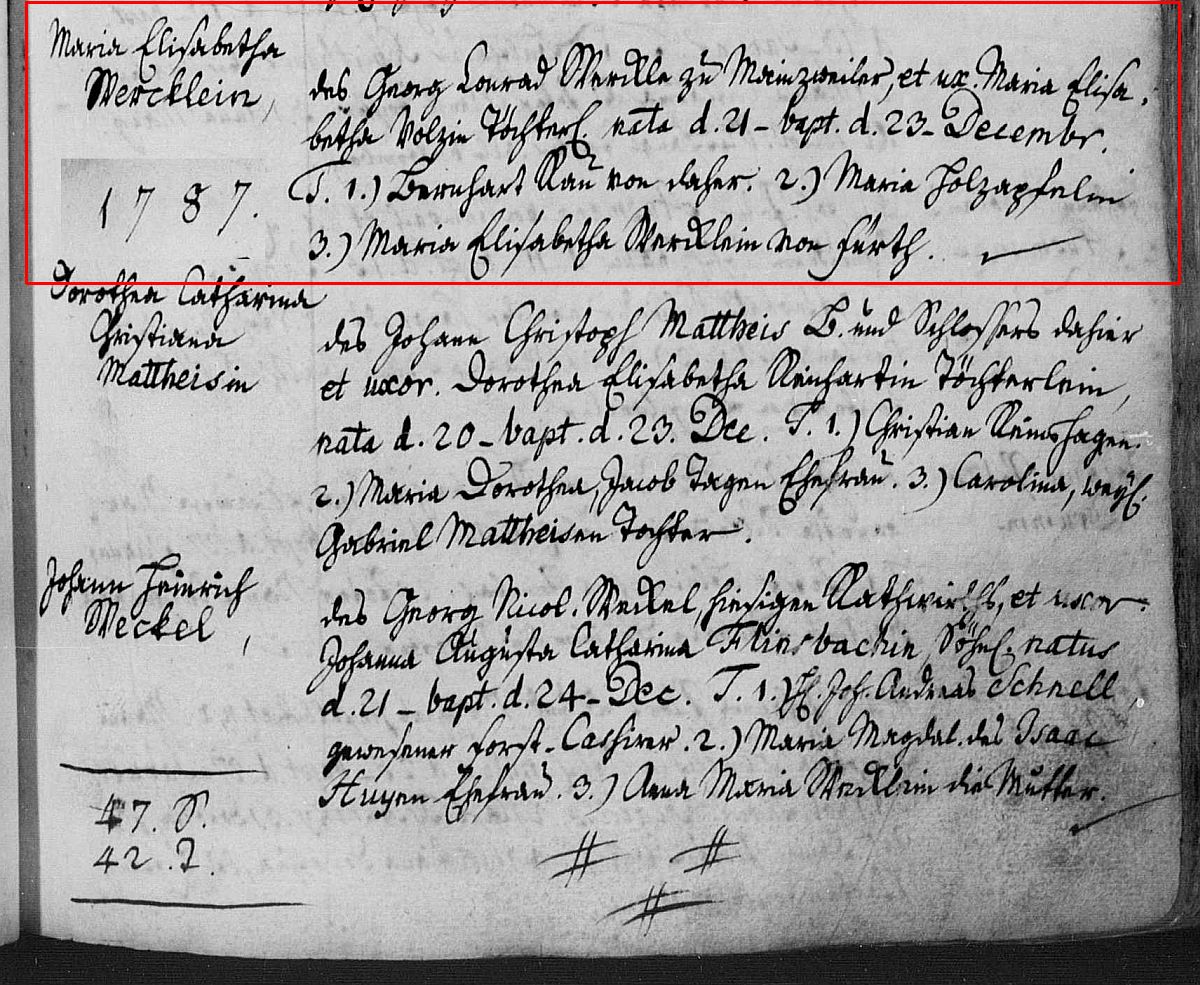 Maria Elisabetha
Wercklein,
des Georg Conrad Werckle zu Mainzweiler, et ux. Maria Elisa-
betha Volzin Töchterl. nata d. 21 - bapt. d. 23 - Decembr.
1787.
T. 1.) Bernhart Rau von daher. 2.) Maria Holzapfelin
3.) Maria Elisabetha Wercklein von Fürth.
Dorothea Catharina
Christiana
Mattheisin
des Johann Christoph Mattheis B. und Schlossers dahier
et uxor. Dorothea Elisabetha Reinhartin Töchterlein,
nata d. 20 - bapt. d. 23. Dec. T. 1.) Christian
2.) Maria Dorothea, Jacob Tagen Ehefrau. 3.) Carolina, weyl.
Gabriel Mattheisen Tochter.
Johann Heinrich
Weckel,
des Georg Nicol. Weckel, hiesigen Rathwirths, et uxor.
Johanna Augusta Catharina Flinsbachin Söhnl. natus
d. 21 - bapt. d. 24 - Dec. T. 1.) H. Joh. Andreas Schnell,
gewesener Forst-Cashirer. 2.) Maria Magdal. des Isaac
Huyen Ehefrau. 3.) Anna Maria Wercklein die Mutter.
47. S.
42. T.
# #
#